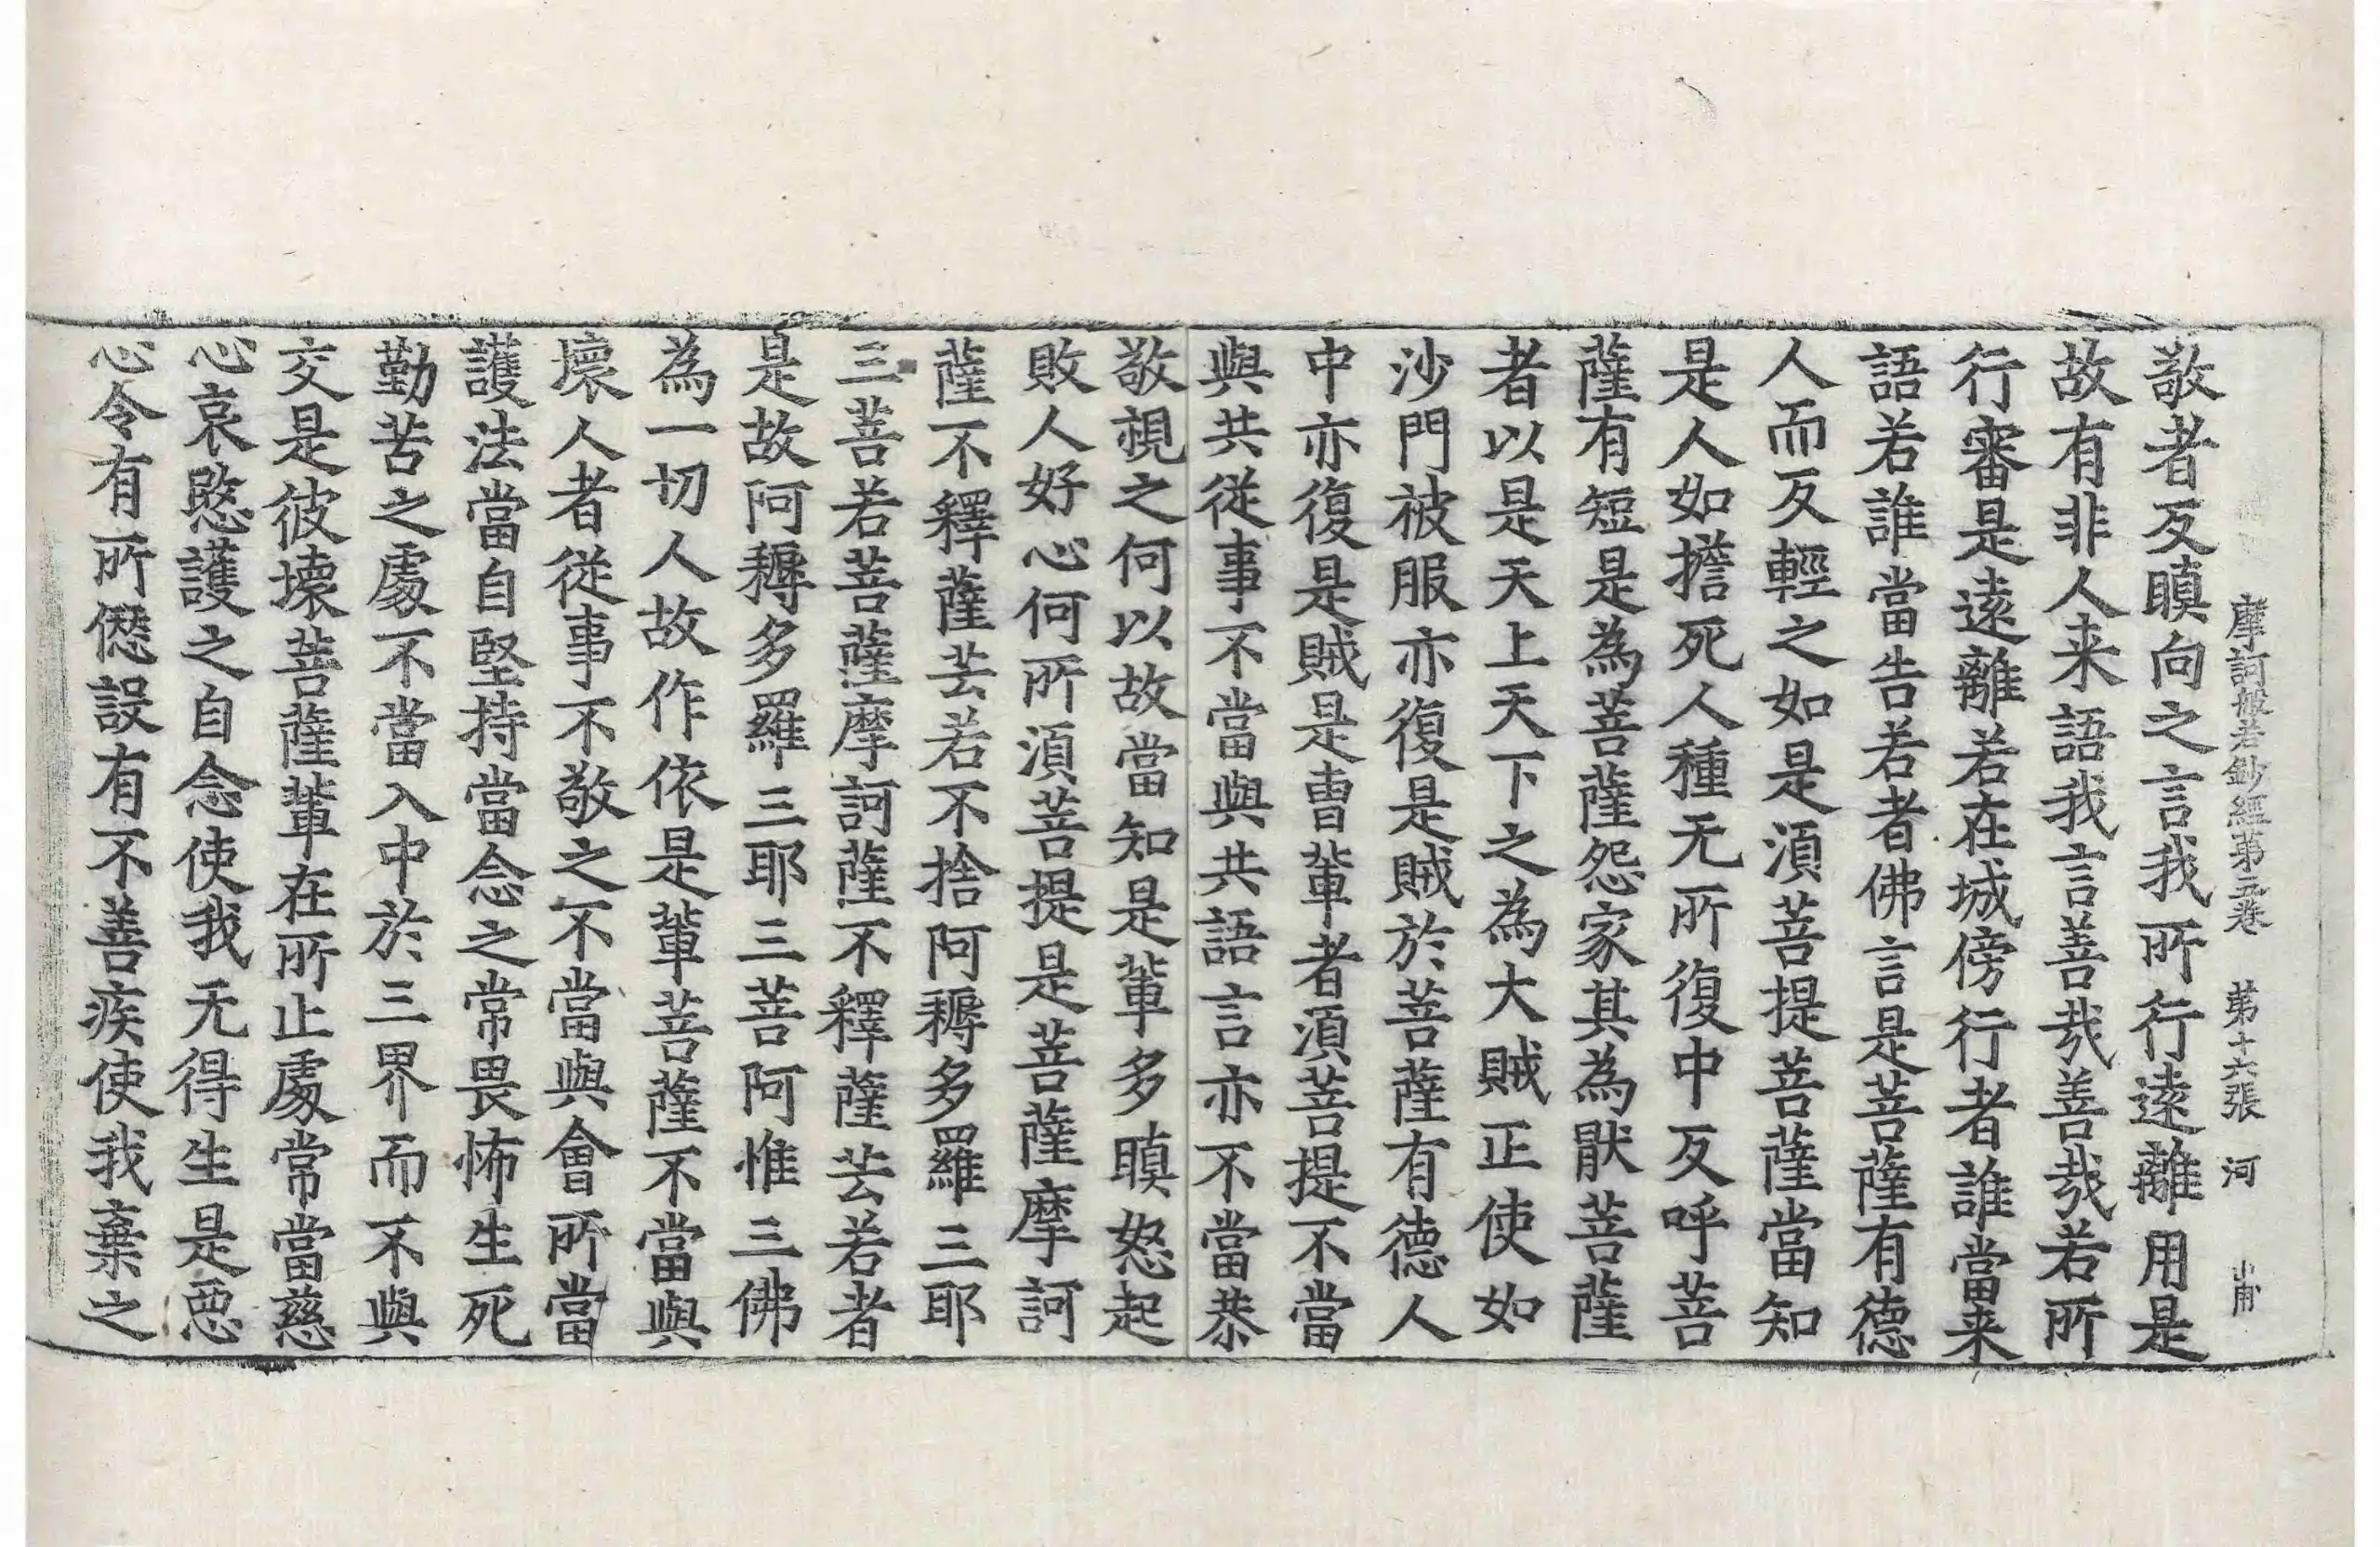 摩訶般若鈔經第五卷 第十六張 河
敬者反瞋向之言我所行遠離用是
故有非人来語我言善㢤善㢤若所
行審是遠離若在城傍行者誰當来
語若誰當告若者佛言是菩薩有德
人而反輕之如是湏菩提菩薩當知
是人如擔死人種无所復中反呼菩
薩有短是為菩薩怨家其為猒菩薩
者以是天上天下之為大賊正使如
沙門被服亦復是賊於菩薩有德人
中亦復是賊是曹輩者湏菩提不當
與共從事不當與共語言亦不當恭
敬視之何以故當知是輩多瞋怒起
敗人好心何所湏菩提是菩薩摩訶
薩不釋薩芸若不捨阿耨多羅三耶
三菩若菩薩摩訶薩不釋薩芸若者
是故阿耨多羅三耶三菩阿惟三佛
為一切人故作依是輩菩薩不當與
壞人者從事不敬之不當與會所當
護法當自堅持當念之常畏怖生死
勤苦之處不當入中於三界而不與
交是彼壞菩薩輩在所止處常當慈
心哀愍護之自念使我无得生是惡
心令有所僁設有不善疾使我棄之